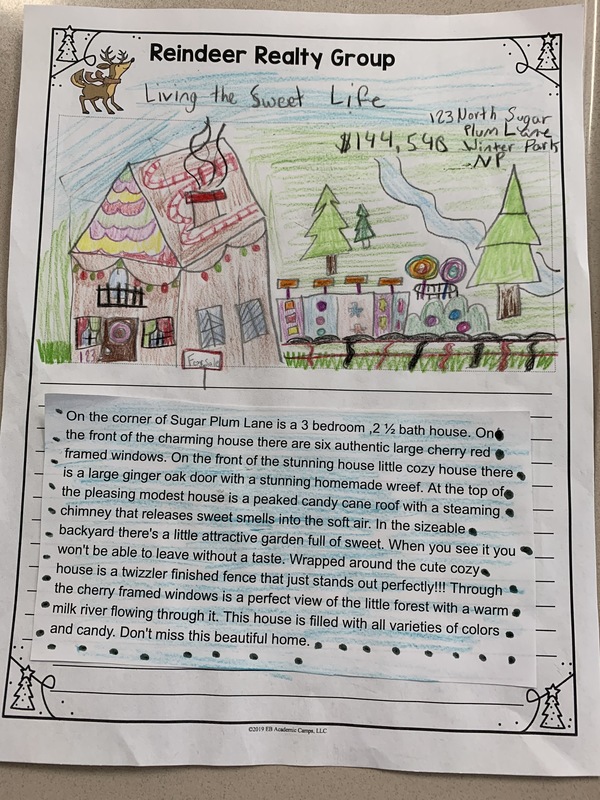 Reindeer Realty Group
Living the Sweet Life
123 North Sugar
Plum Lane
Winter Park
NP
$144,540
123
For sale
On the corner of Sugar Plum Lane is a 3 bedroom ,2 ½ bath house. On
the front of the charming house there are six authentic large cherry red
framed windows. On the front of the stunning house little cozy house there
is a large ginger oak door with a stunning homemade wreef. At the top of
the pleasing modest house is a peaked candy cane roof with a steaming
chimney that releases sweet smells into the soft air. In the sizeable
backyard there's a little attractive garden full of sweet. When you see it you
won't be able to leave without a taste. Wrapped around the cute cozy
house is a twizzler finished fence that just stands out perfectly!!! Through
the cherry framed windows is a perfect view of the little forest with a warm
milk river flowing through it. This house is filled with all varieties of colors
and candy. Don't miss this beautiful home.
©2019 EB Academic Camps, LLC